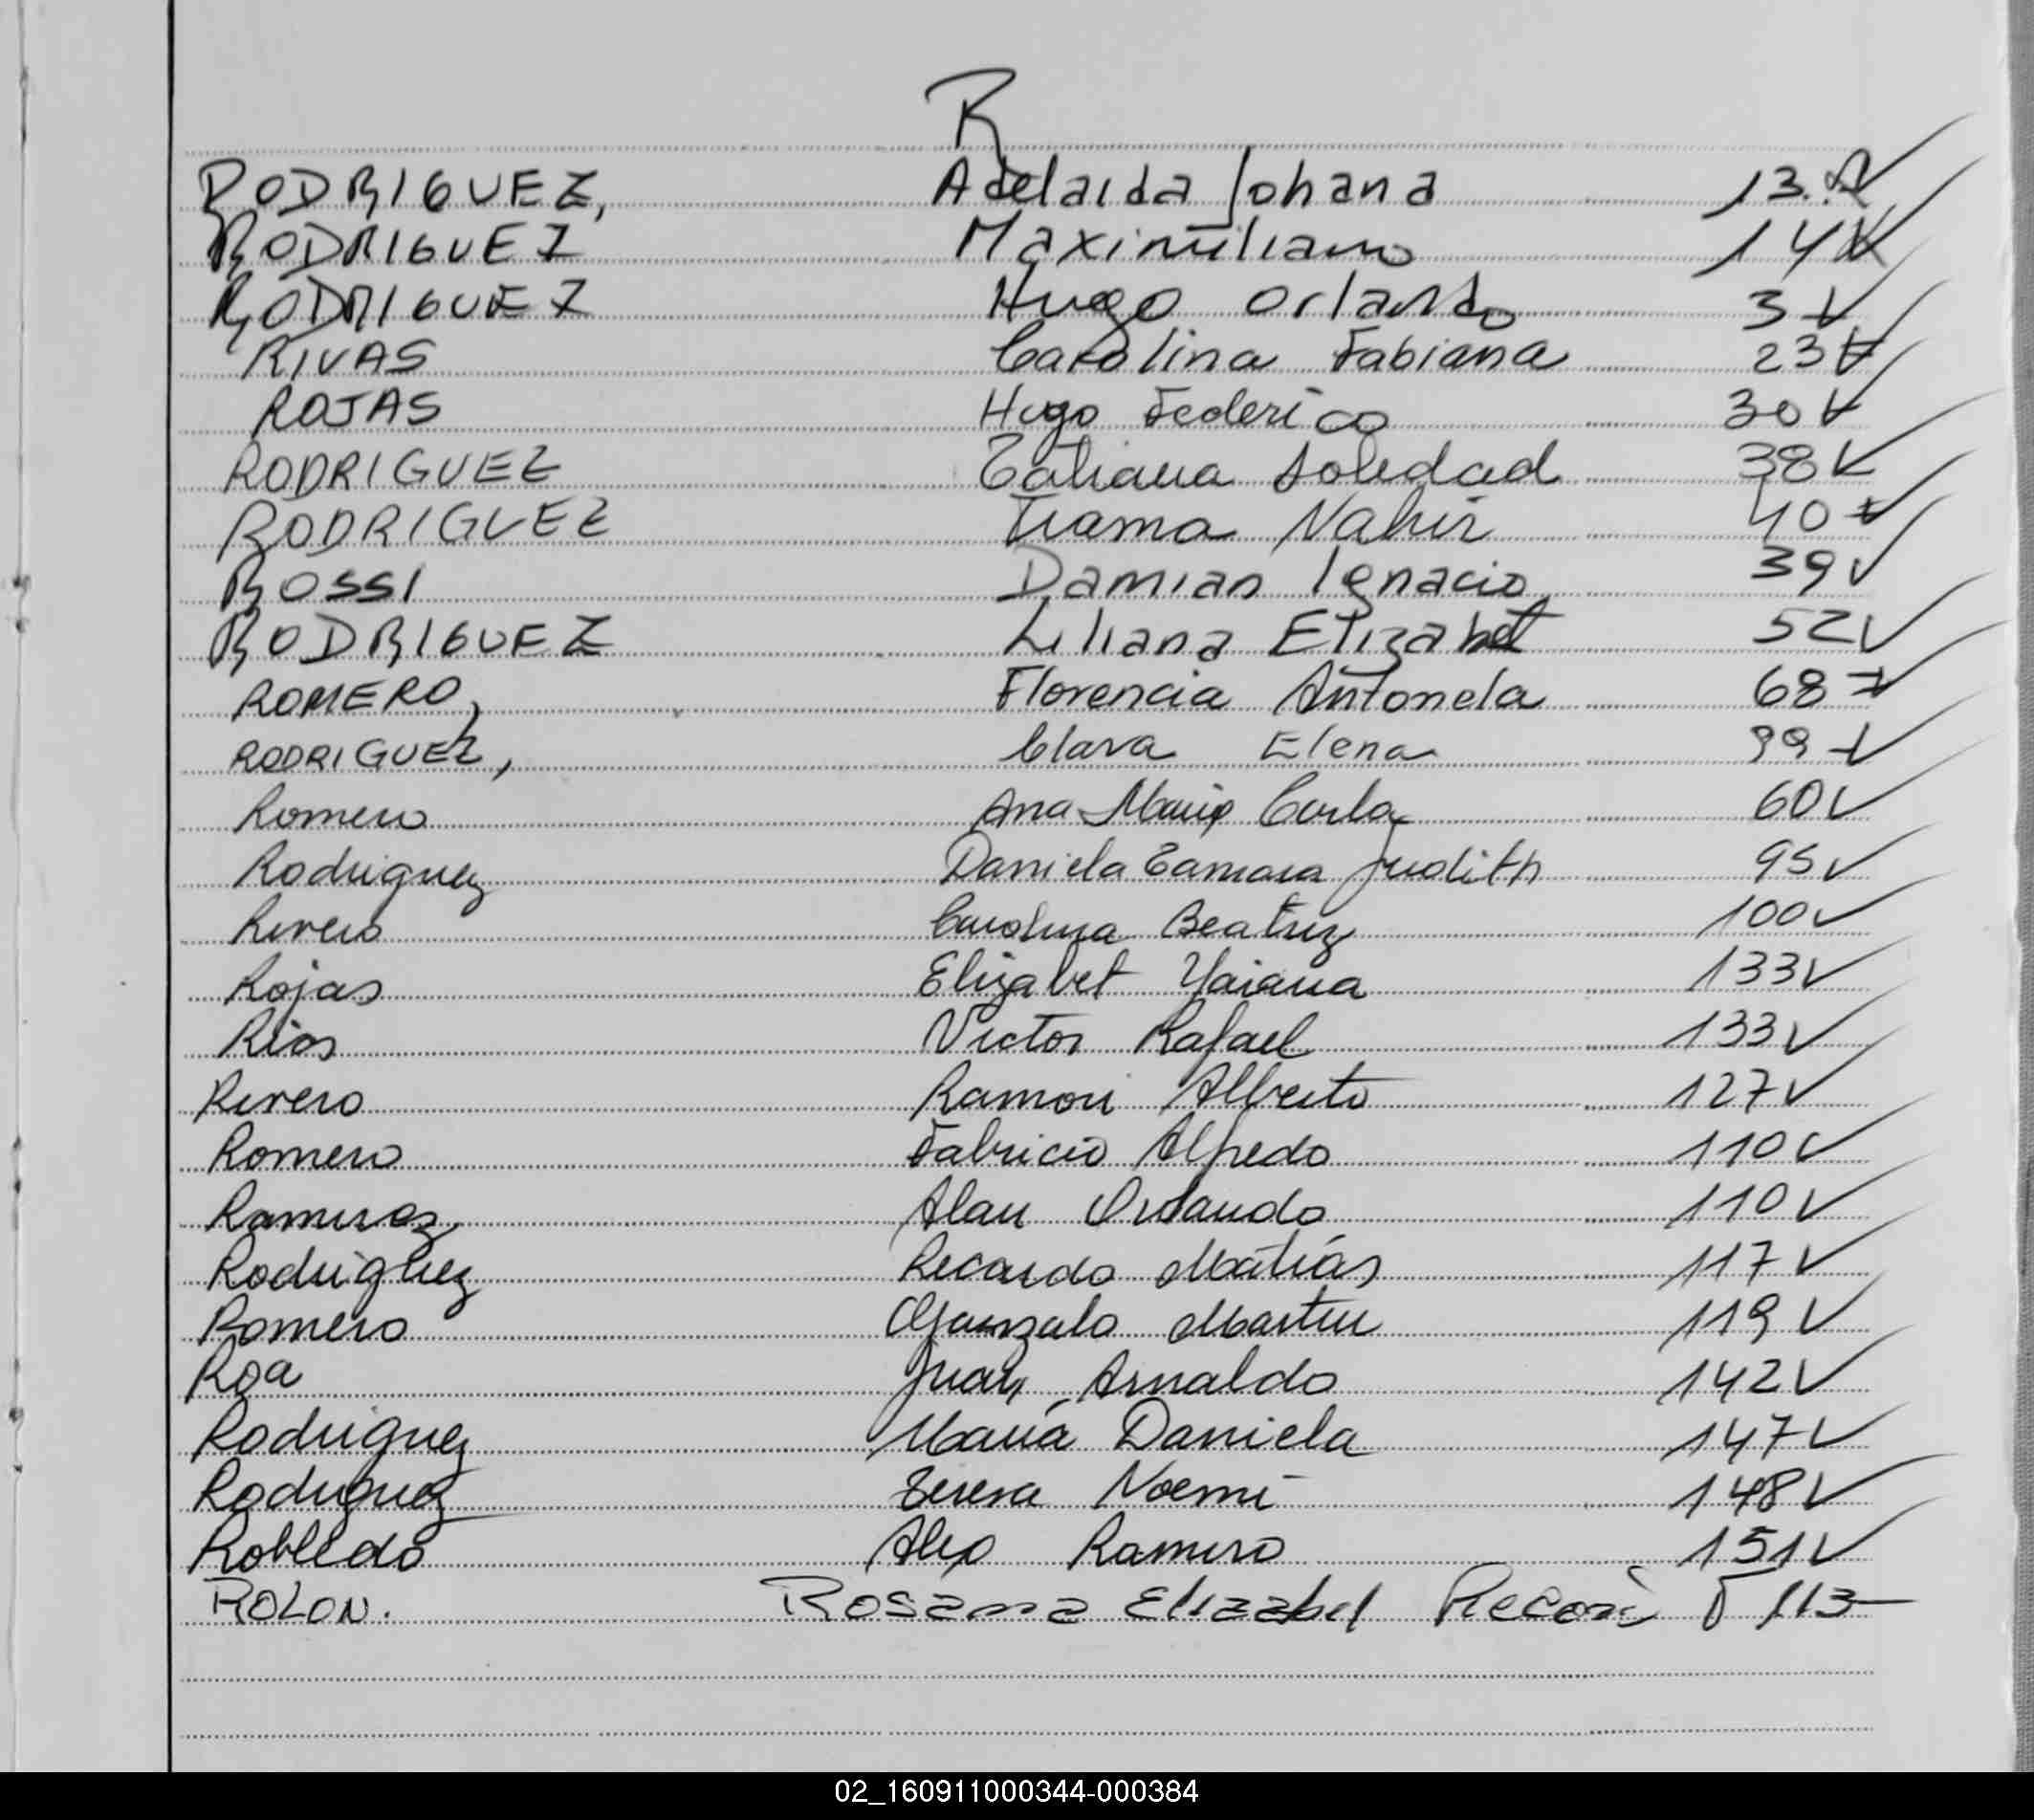 R
RODRIGUEZ, Adelaida Johana 13
RODRIGUEZ Maximiliano 14
RODRIGUEZ Hugo Orlando 3
RIVAS Carolina Fabiana 23
ROJAS Hugo Federico 30
RODRIGUEZ Tatiana Soledad 38
RODRIGUEZ Nahir 40
ROSSI Damian Ignacio 39
RODRIGUEZ Liliana Elizabet 52
ROMERO, Florencia Antonela 68
RODRIGUEZ, Clara Elena 99
Romero Ana Maria Carla 60
Rodriguez Daniela Tamara Judith 95
Rivero Carolina Beatriz 100
Rojas Elizabet Yaiana 133
Rios Victor Rafael 133
Rivero Ramon Alberto 127
Romero Fabricio Alfredo 110
Ramirez Alan Orlando 110
Rodriguez Ricardo Matias 117
Romero Gonzalo Martin 119
Roa Juan Arnaldo 142
Rodriguez María Daniela 147
Rodriguez Teresa Noemi 148
Robledo Ramiro 151
ROLON. Rosana Elizabet 113
02_160911000344-000384